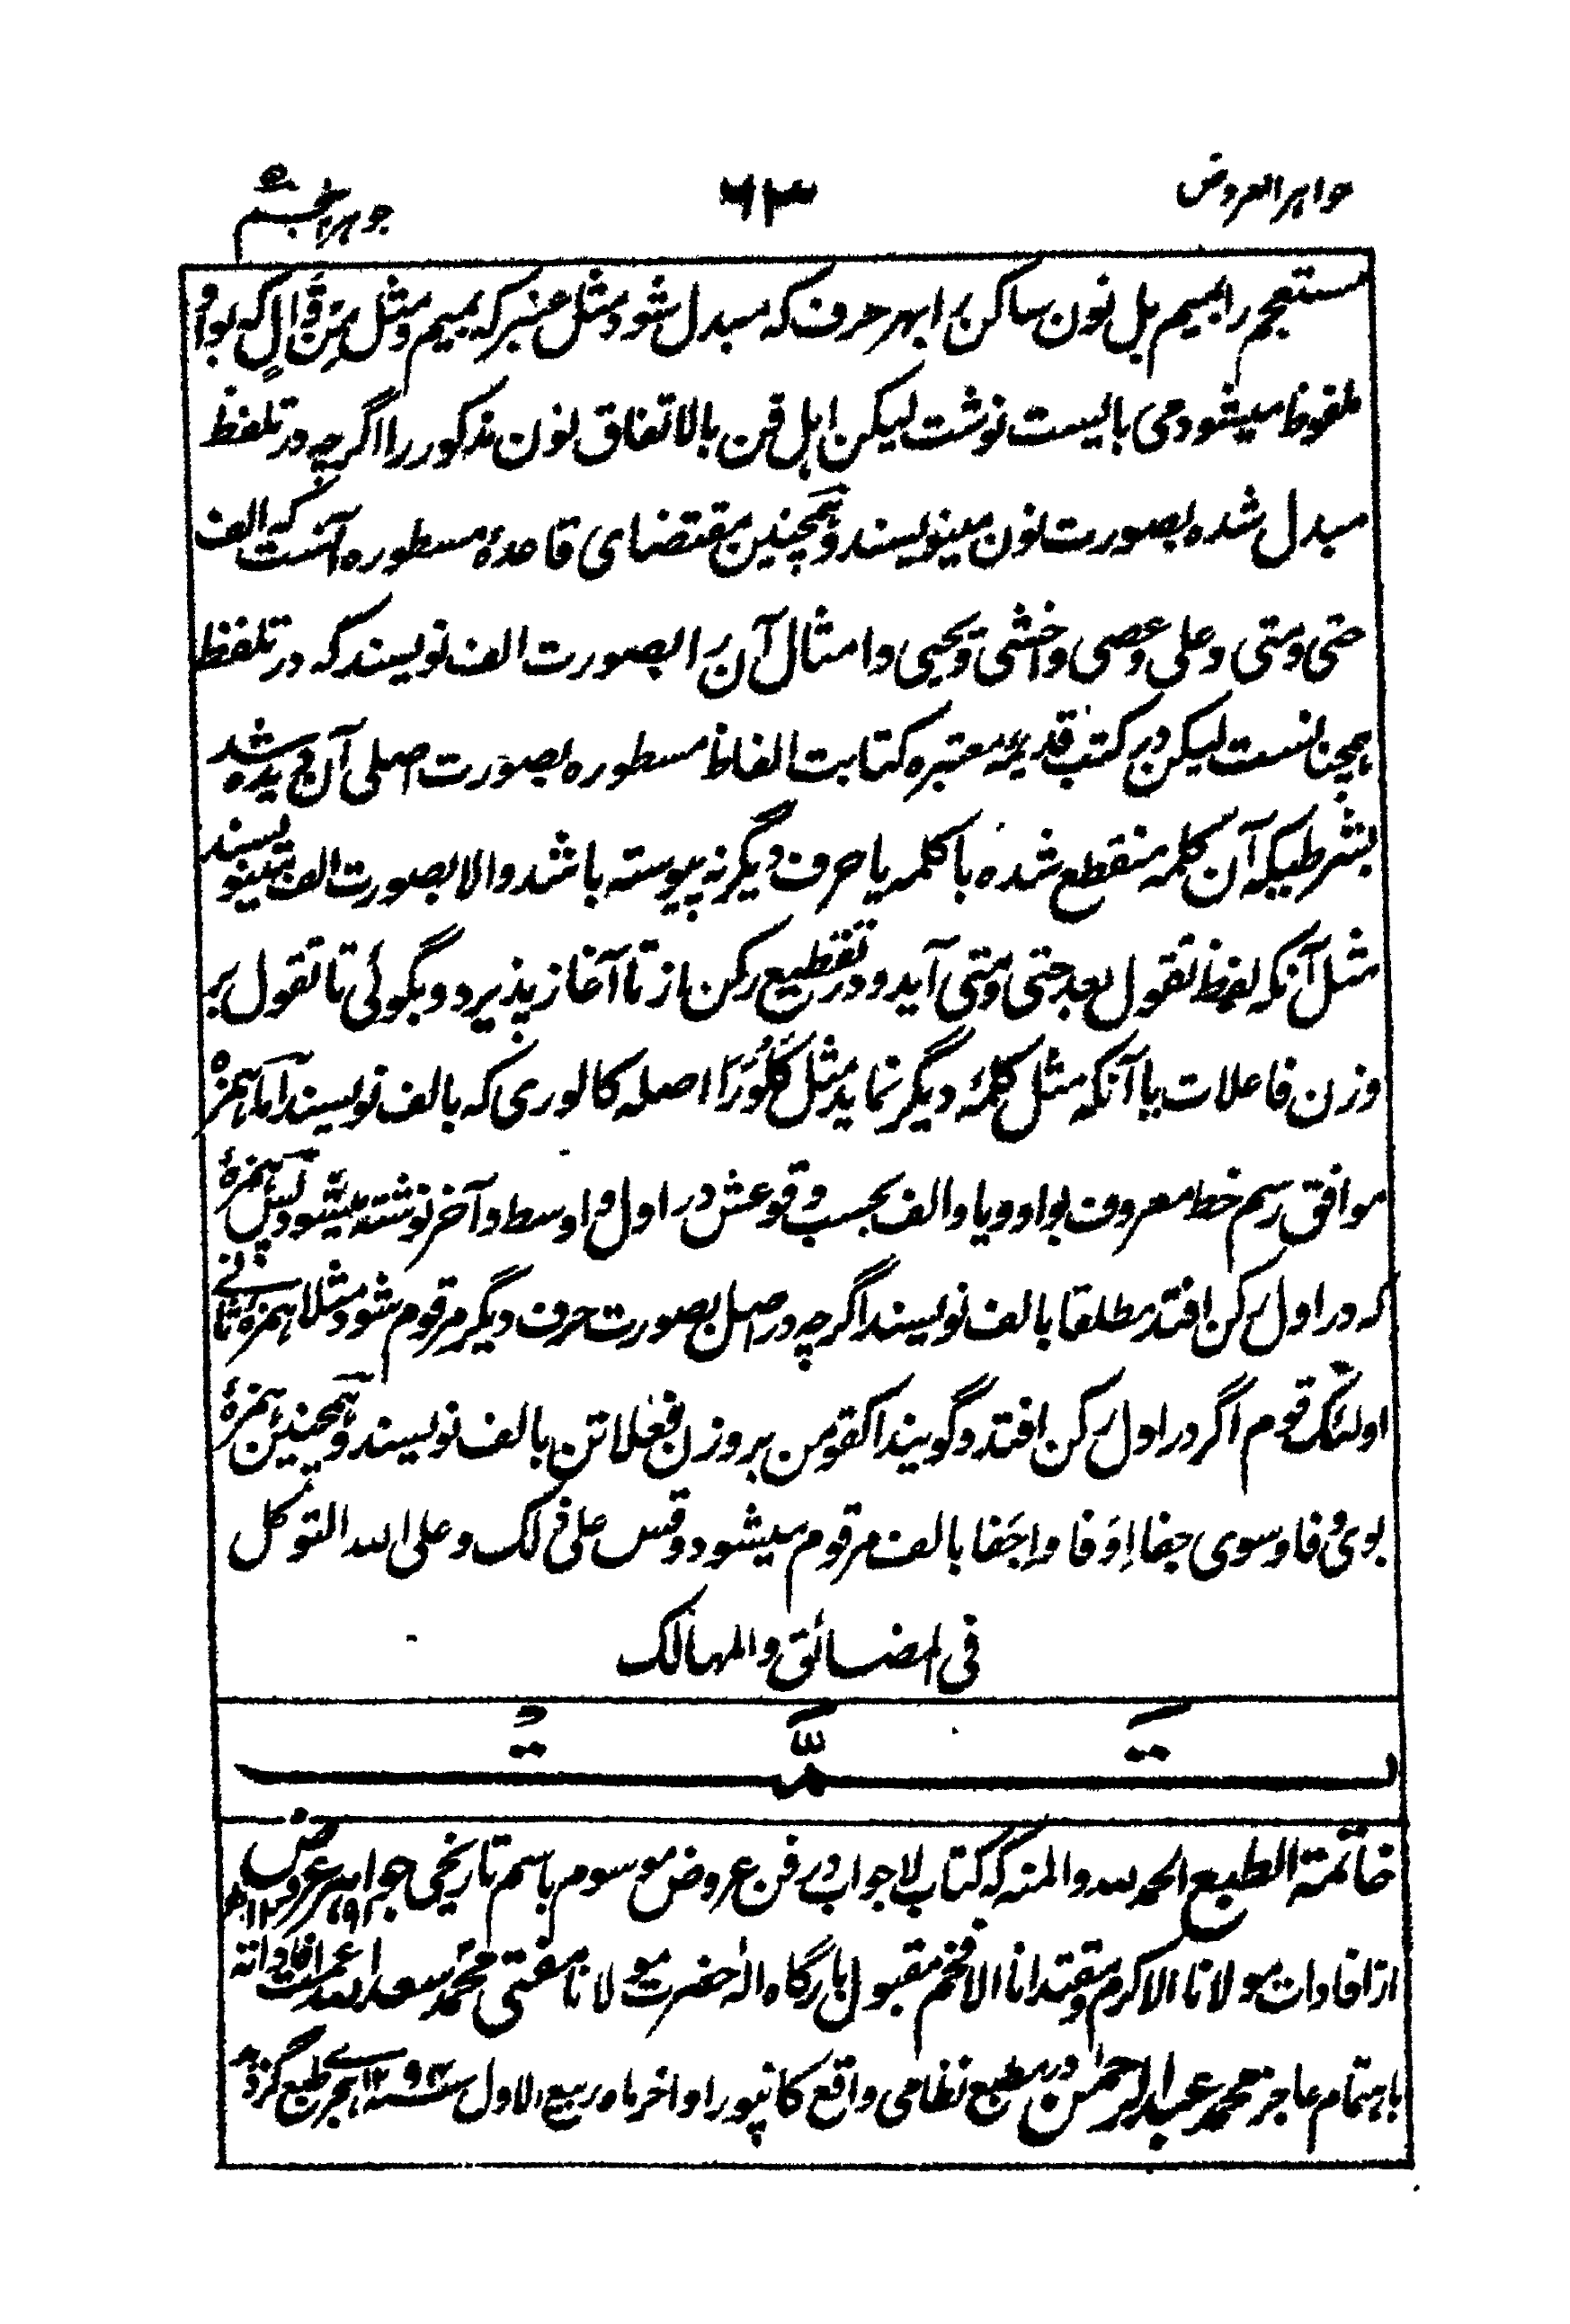 جواہر العروض
۶۳
جوہر پنجم
مستعجم را بمیم بل نون ساکن را بہر حرف کہ مبدل شود مثل عنبر کہ بمیم و مثل مِن وَّالٍ کہ بواو
ملفوظ میشود می بایست نوشت لیکن اہل فن بالاتفاق نون مذکور را اگرچہ در تلفظ
مبدل شدہ بصورت نون مینویسند و ہمچنین مقتضای قاعدۂ مسطورہ آنست کہ الف
حتی و متی و علی و عصی و اخشی و یحیی و امثال آن را بصورت الف نویسند کہ در تلفظ
ہمچنانست لیکن در کتب قدیمہ معتبرہ کتابت الفاظ مسطورہ بصورت اصلی آن دیدہ شد
بشرطیکہ آن کلمہ منقطع شدہ با کلمہ یا حرف دیگر نہ پیوستہ باشد والا بصورت الف مینویسند
مثل آنکہ لفظ تقول بعد حتی و متی آید و در تقطیع رکن از تا آغاز پذیرد و بگوئی تا تقول بر
وزن فاعلات یا آنکہ مثل کلمۂ دیگر نماید مثل کَلَوُرَا اصلہ کالوری کہ بالف نویسند اما ہمزہ
موافق رسم خط معروف بواو و یا و الف بحسب وقوعش در اول و اوسط و آخر نوشتہ میشود پس ہمزۂ
کہ در اول رکن افتد مطلقا بالف نویسند اگرچہ در اصل بصورت حرف دیگر مرقوم شود مثلا ہمزۂ ثانی
اولئک قوم اگر در اول رکن افتد و گویند اکقومن بر وزن فعلاتن بالف نویسند و ہمچنین ہمزۂ
بوئ وفا و سوی جفا اِوَفا و اِجَفا بالف مرقوم میشود وقس علی ذلک وعلی اللہ التوکل
فی المضائق والمہالک
تمت
خاتمۃ الطبع الحمد للہ والمنہ کہ کتاب لاجواب در فن عروض موسوم باسم تاریخی جواہر عروض
از افادات مولانا الاکرم و مقتدانا الافخم مقبول بارگاہ الہ حضرت مولانا مفتی محمد سعد اللہ عمت افاداتہ
باہتمام عاجز محمد عبد الرحمن در مطبع نظامی واقع کانپور اواخر ماہ ربیع الاول سنہ ہجری طبع گردید